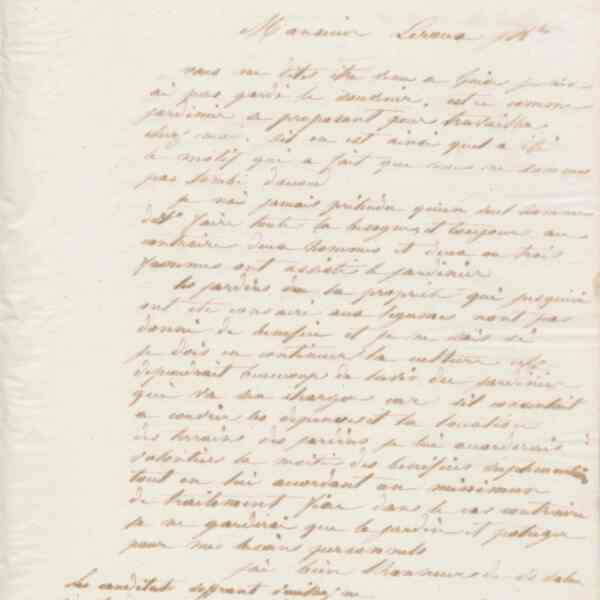 Monsieur Leroux
vous me dites être venu a Guise je n'en
ai pas gardé le souvenir. est ce comme
jardinier se proposant pour travailler
chez moi. s'il en est ainsi quel a été
le motif qui a fait que nous ne sommes
pas tombé d'accord
je n'ai jamais prétendu qu'un seul homme
dut faire toute la besogne, et toujours au
contraire deux hommes et deux ou trois
femmes ont assisté le jardinier
Les jardins de la propriété qui jusqu'ici
ont été consacré aux légumes n'ont pas
donné de bénéfice et je ne sais si
je dois en continuer la culture cela
dépendrait beaucoup de l'avis du jardinier
que va en charge car s'il consentait
a couvrir les dépenses et la location
des terrains des jardins je lui accorderais
volontiers la moitié des bénéfices
tout en lui accordant un minimum
de traitement fixe dans le cas contraire
je ne garderai que le jardin et potager
pour mes besoins personnels
j'ai bien l'honneur de
Les candidats s'offrant